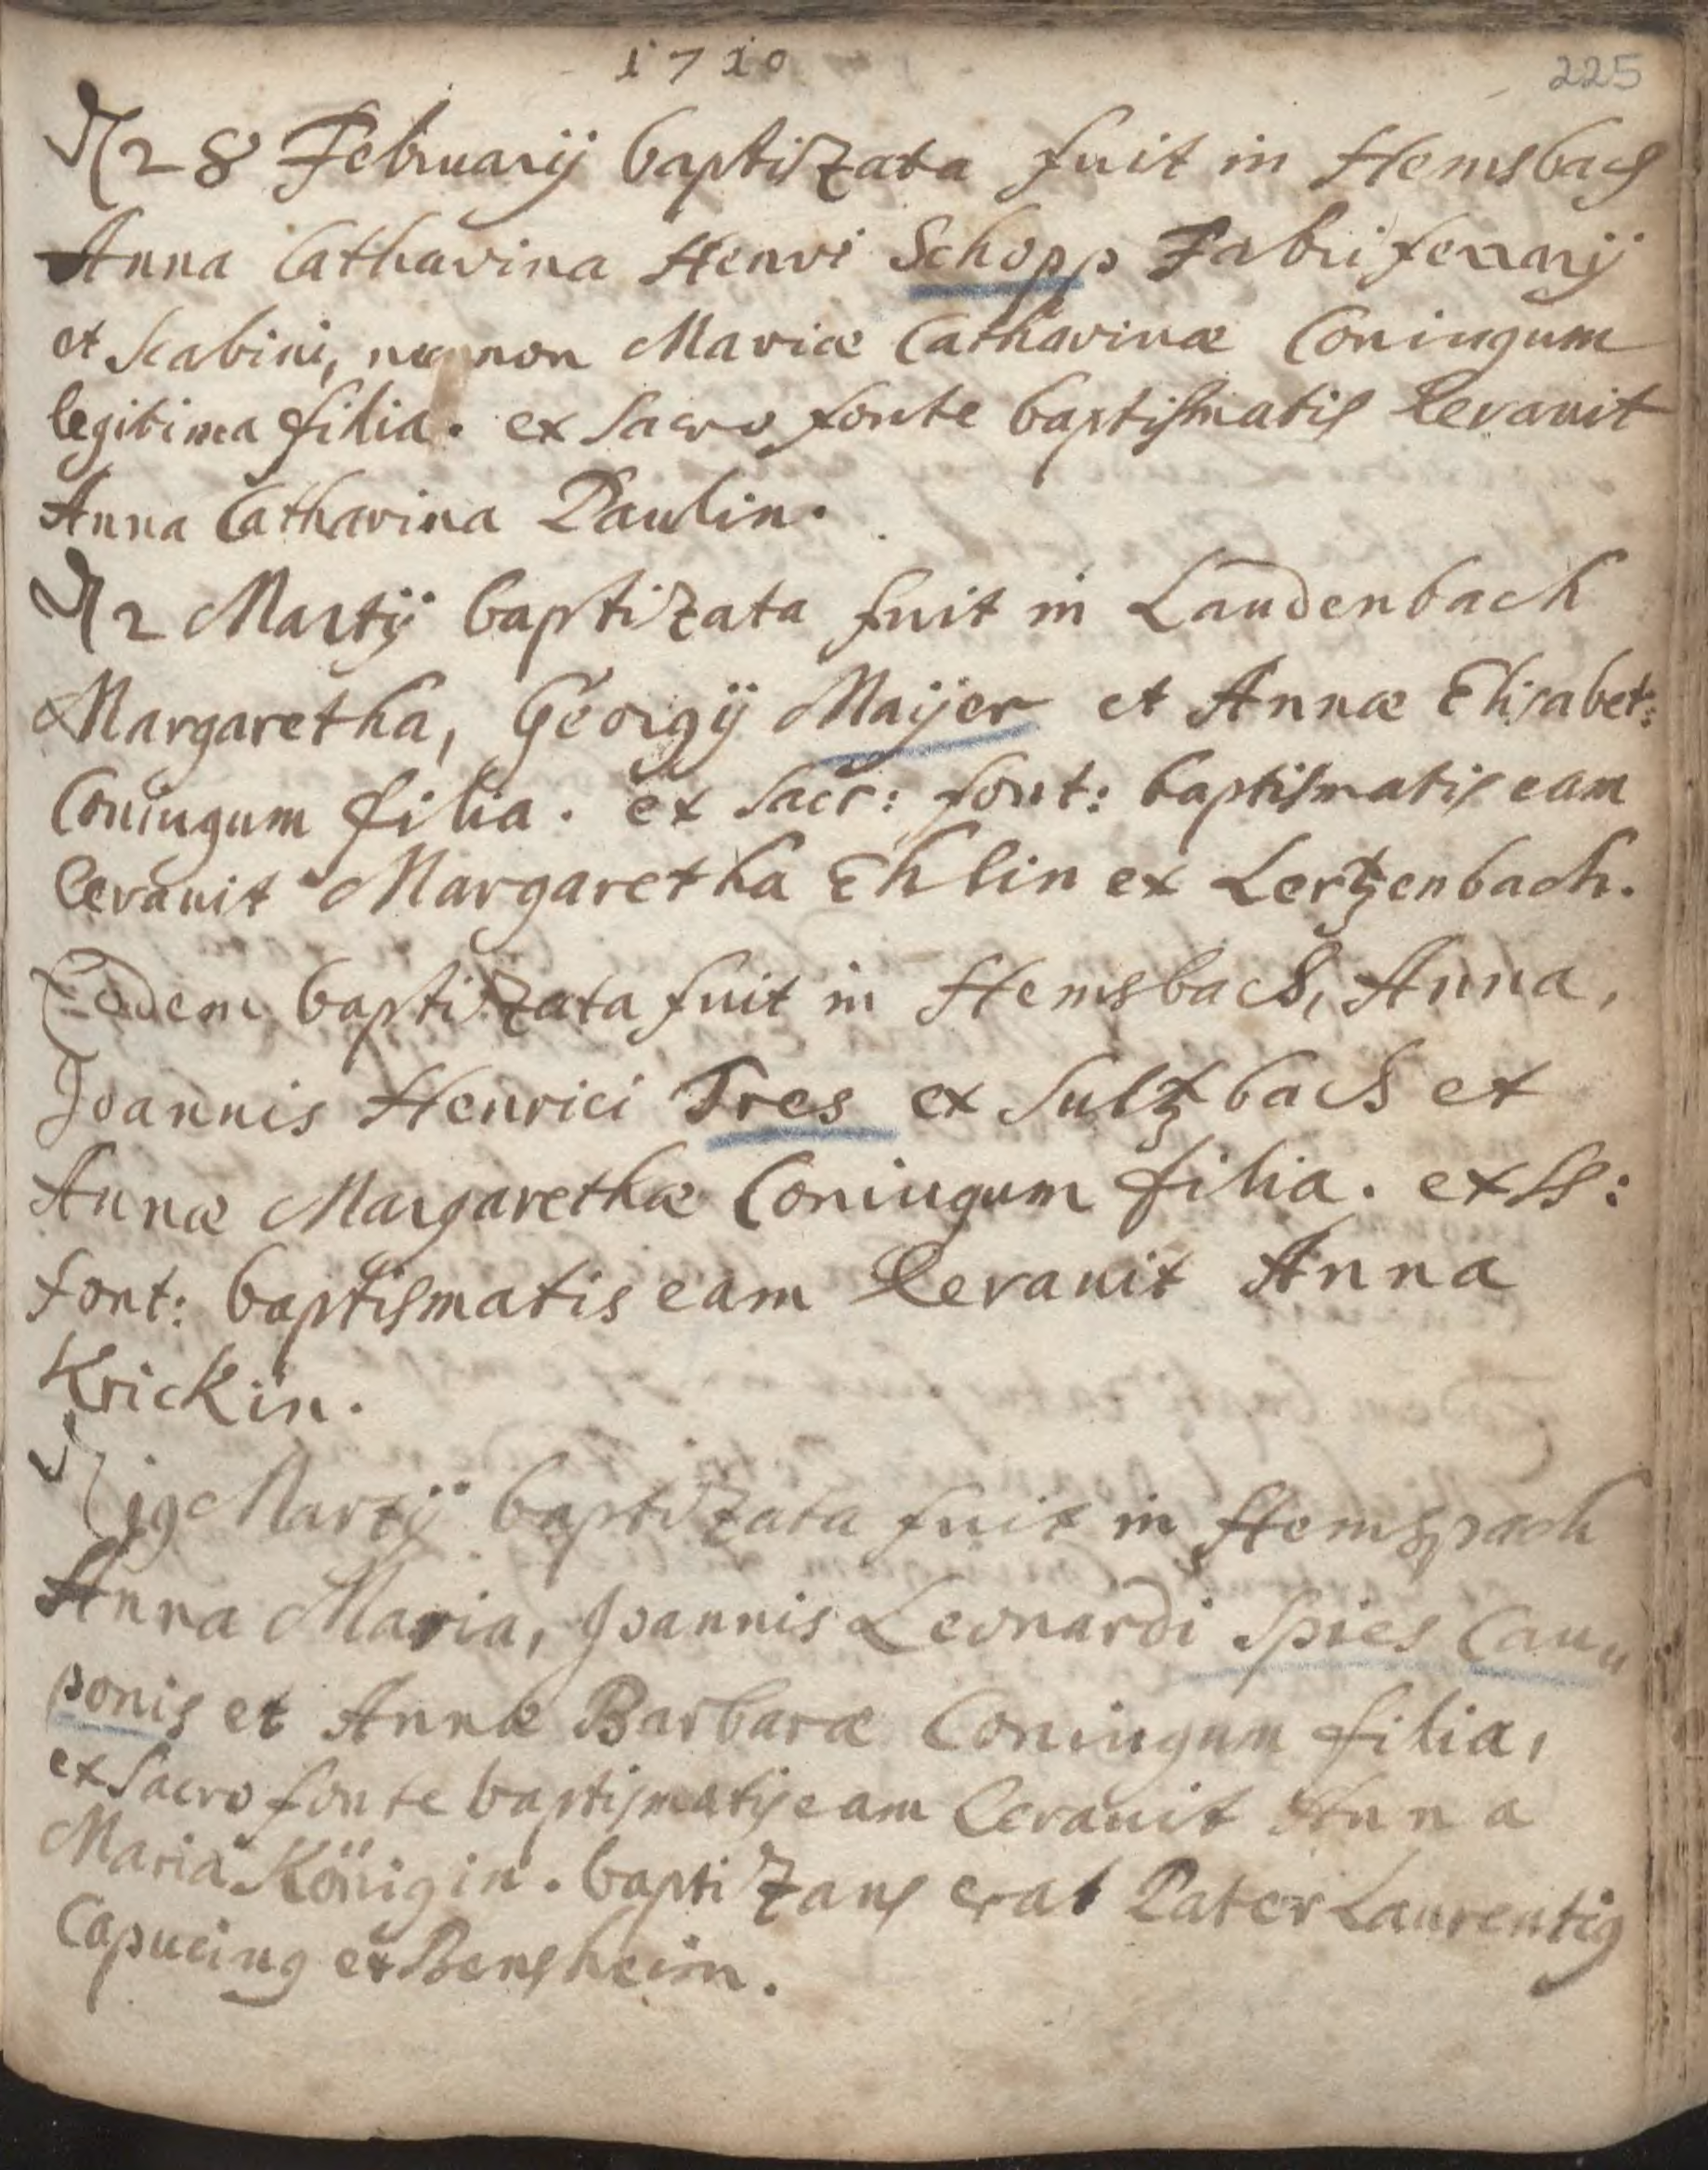 1710
225
28 Februarij baptizata fuit in Hemsbach
Anna Catharina Henri Schopp Fabri ferrarij
et Scabini, necnon Mariæ Catharinæ Coniugum
legitima filia. ex Sacro fonte baptismatis levauit
Anna Catharina Paulin.
2 Martij baptizata fuit in Laudenbach
Margaretha, Georgij Maijer et Annæ Elisabet:
Coniugum filia. ex Sacr: font: baptismatis eam
levauit Margaretha Ehlin ex Lertzenbach.
Eodem baptizata fuit in Hemsbach, Anna,
Joannis Henrici Tres ex Sultzbach et
Annæ Margarethæ Coniugum filia. ex SS:
font: baptismatis eam levauit Anna
Krickin.
19 Martij baptizata fuit in Hemspach
Anna Maria, Joannis Leonardi Spies Cau„
ponis et Annæ Barbaræ Coniugum filia,
ex Sacro fonte baptismatis eam levauit Anna
Maria Königin. baptizans erat Pater Laurentig
Capucing ex Bensheim.